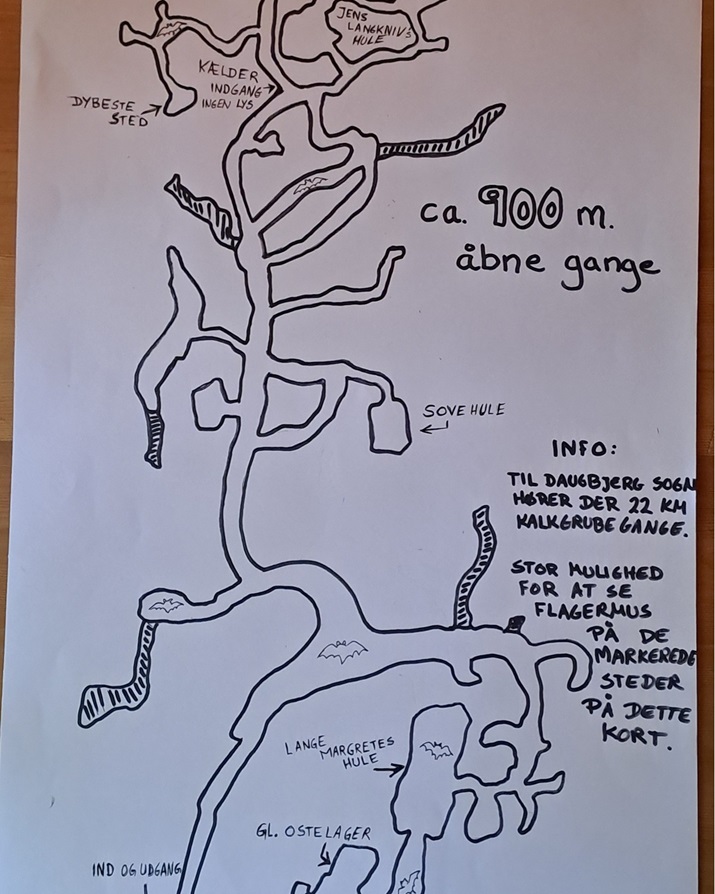 JENS
LANGKNIV'S
HULE
KÆLDER
INDGANG
INGEN LYS
DYBESTE
STED
ca. 900 m.
åbne gange
SOVE HULE
INFO:
TIL DAUGBJERG SOGN
HØRER DER 22 KM
KALKGRUBE GANGE.
STOR MULIGHED
FOR AT SE
FLAGERMUS
PÅ DE
MARKEREDE
STEDER
PÅ DETTE
KORT.
LANGE
MARGRETES
HULE
GL. OSTELAGER
IND OG UDGANG